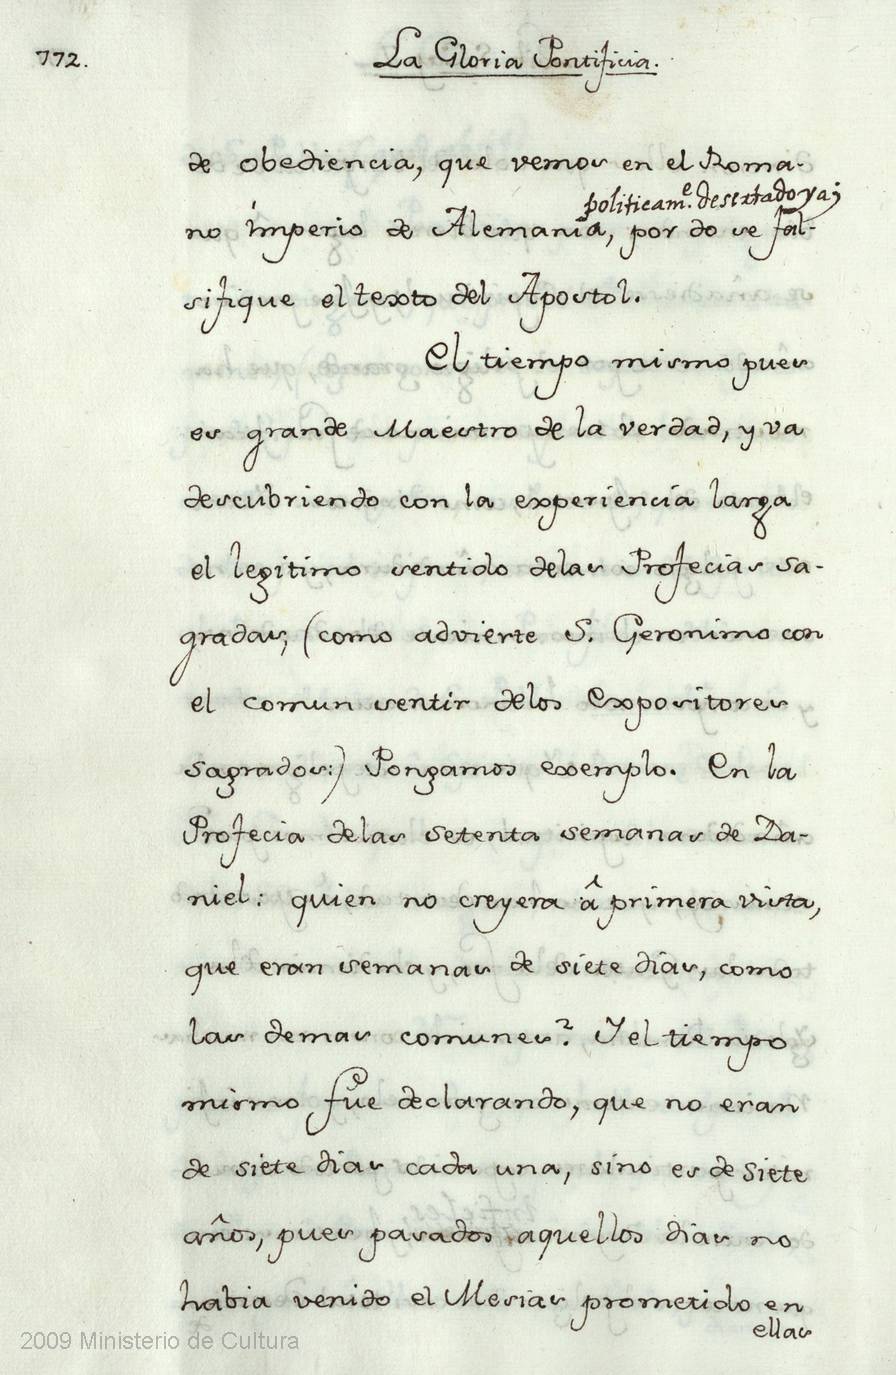 772.
La Gloria Pontificia.
de obediencia, que vemos en el Roma-
politicam.e desertado ya;
no imperio de Alemania, por do se fal-
sifique el texto del Apostol.
El tiempo mismo pues
es grande Maestro de la verdad, y va
descubriendo con la experiencia larga
el legitimo sentido delas Profecias sa-
gradas; (como advierte S. Geronimo con
el comun sentir delos Expositores
sagrados:) Pongamos exemplo. En la
Profecia delas setenta semanas de Da-
niel: quien no creyera â primera vista,
que eran semanas de siete dias, como
las demas comunes? Y el tiempo
mismo fue declarando, que no eran
de siete dias cada una, sino es de siete
años, pues pasados aquellos dias no
habia venido el Mesias prometido en
ellas
2009 Ministerio de Cultura